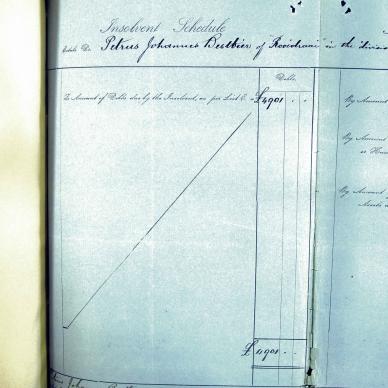 Insolvent Schedule
Estate Dr. Petrus Johannes Bestbier of Rooidraai in the Division
Debts
To Amount of Debts due by the Insolvent, as per List E. £4901 . .
By Amount
By Amount
By Amount
£ 4901 . .